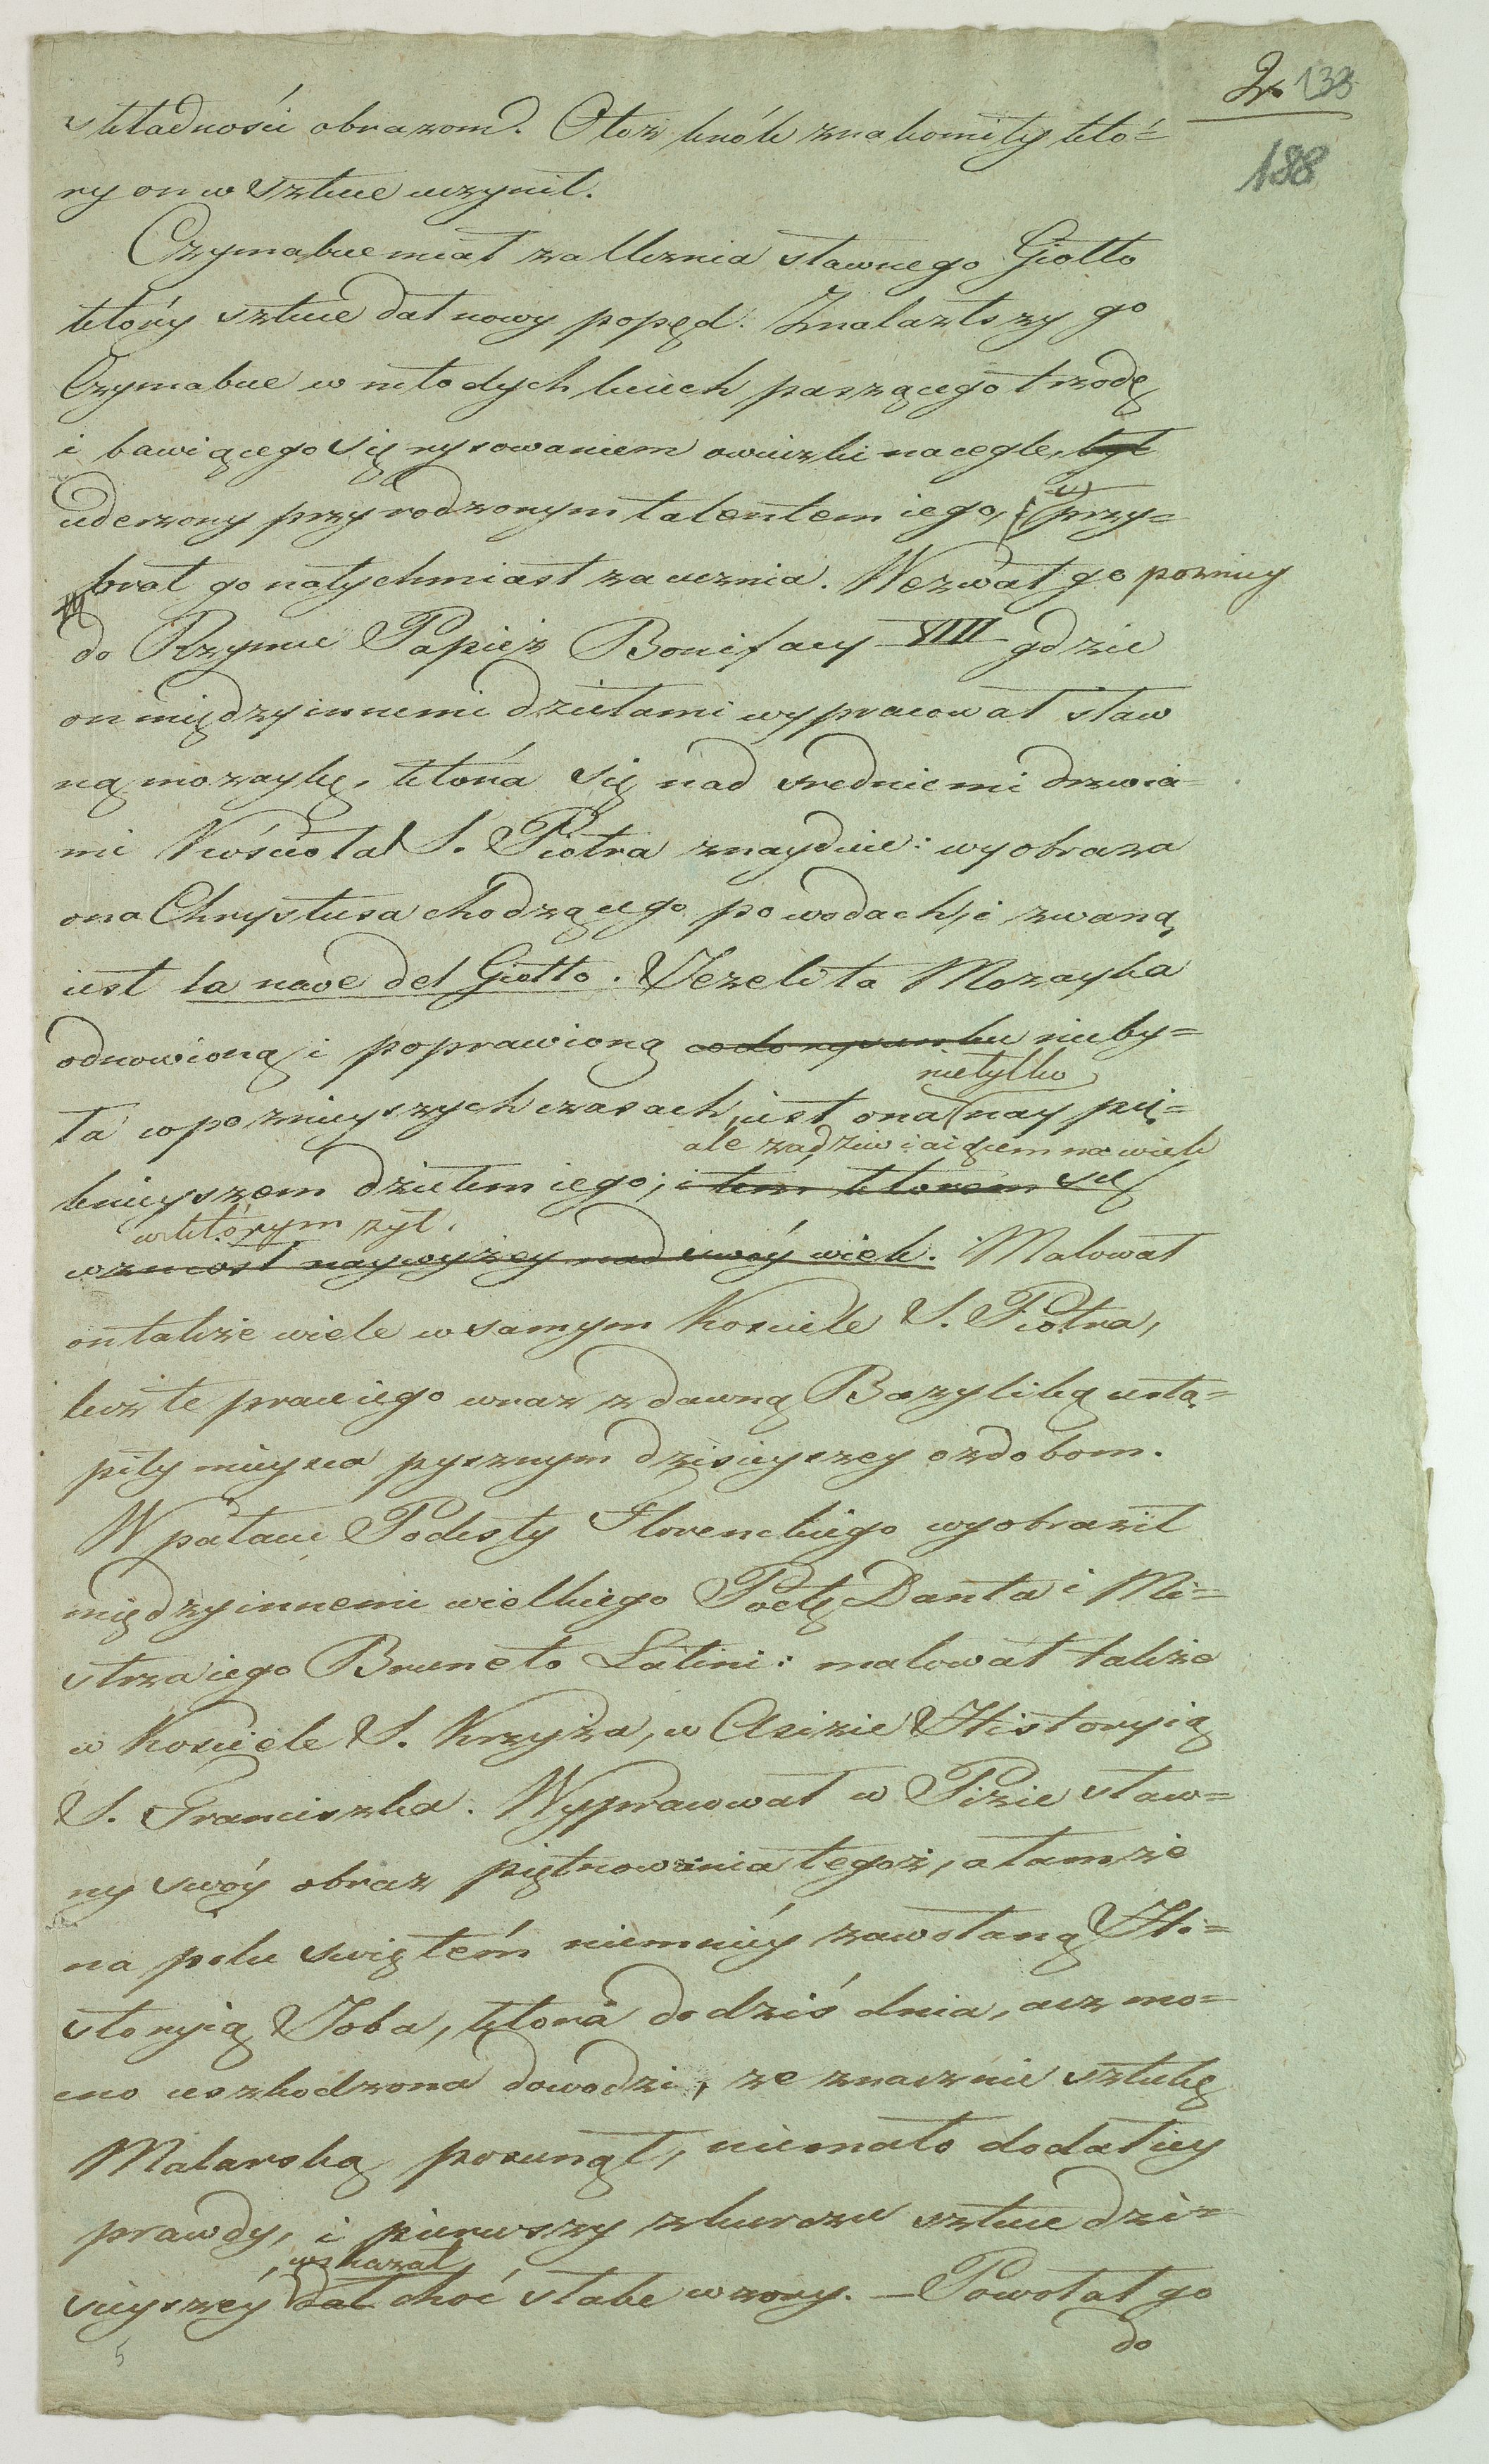 2. 133
188
składności obrazom. Otoż krók znakomity któ=
ry on w Sztuce uczynił.
Czymabue miał za Ucznia sławnego Giotto
który sztuce dał nowy popęd. Znalazłszy go
Czymabue w młodych leciech pasząceģo trzodę
i bawiącego się rysowaniem owieczki na cegle, był
uderzony przyrodzonym talentem iego, i przy=
brał go natychmiast za ucznia. Wezwał go pozniey
do Rzymu Papież Bonifacy VIII gdzie
on między innemi dziełami wypracował sław
ną mozaykę, ktora się nad sredniemi drzwia=
mi Kościoła S. Piotra znayduie: wyobraza
ona Chrystusa chodzącego po wodach, i zwaną
iest la nave del Giotto. Jezeli ta Mozayka
odnowioną i poprawioną co do rysunku nieby=
ła w poznieyszych czasach, iest ona nietylko nay pię=
knieyszem dziełem iego; i tem ktorem się
ale zadziwiaiącem na wiek
w którym żył.
wzniosł naywyżey nad swóy wiek. Malował
on także wiele w samym Kosciele S. Piotra,
lecz te prace iego wraz z dawną Bazyliką ustą=
piły mieysca pysznym dzisieyszey ozdobom.
W pałacu Podesty Florenckiego wyobraził
między innemi wielkiego Poetę Danta i Mi=
strza iego Bruneto Latini: malował także
w Kosciele S. Krzyża, w Asizie Historyią
S. Franciszka. Wypracował w Pizie sław=
ny swóy obraz piętnowania tegoż, a tamże
na polu swiętém niemniéy zawołaną Hi=
storyią Joba, ktora do dziś dnia, acz mo=
cno uszkodzona dowodzi, ze znacznie sztukę
Malarską posunął, niemało dodał iey
prawdy, i pierwszy zkurczu sztuce dzi=
sieyszéy wskazał dał choć słabe wzory. — Powołał go
do
5